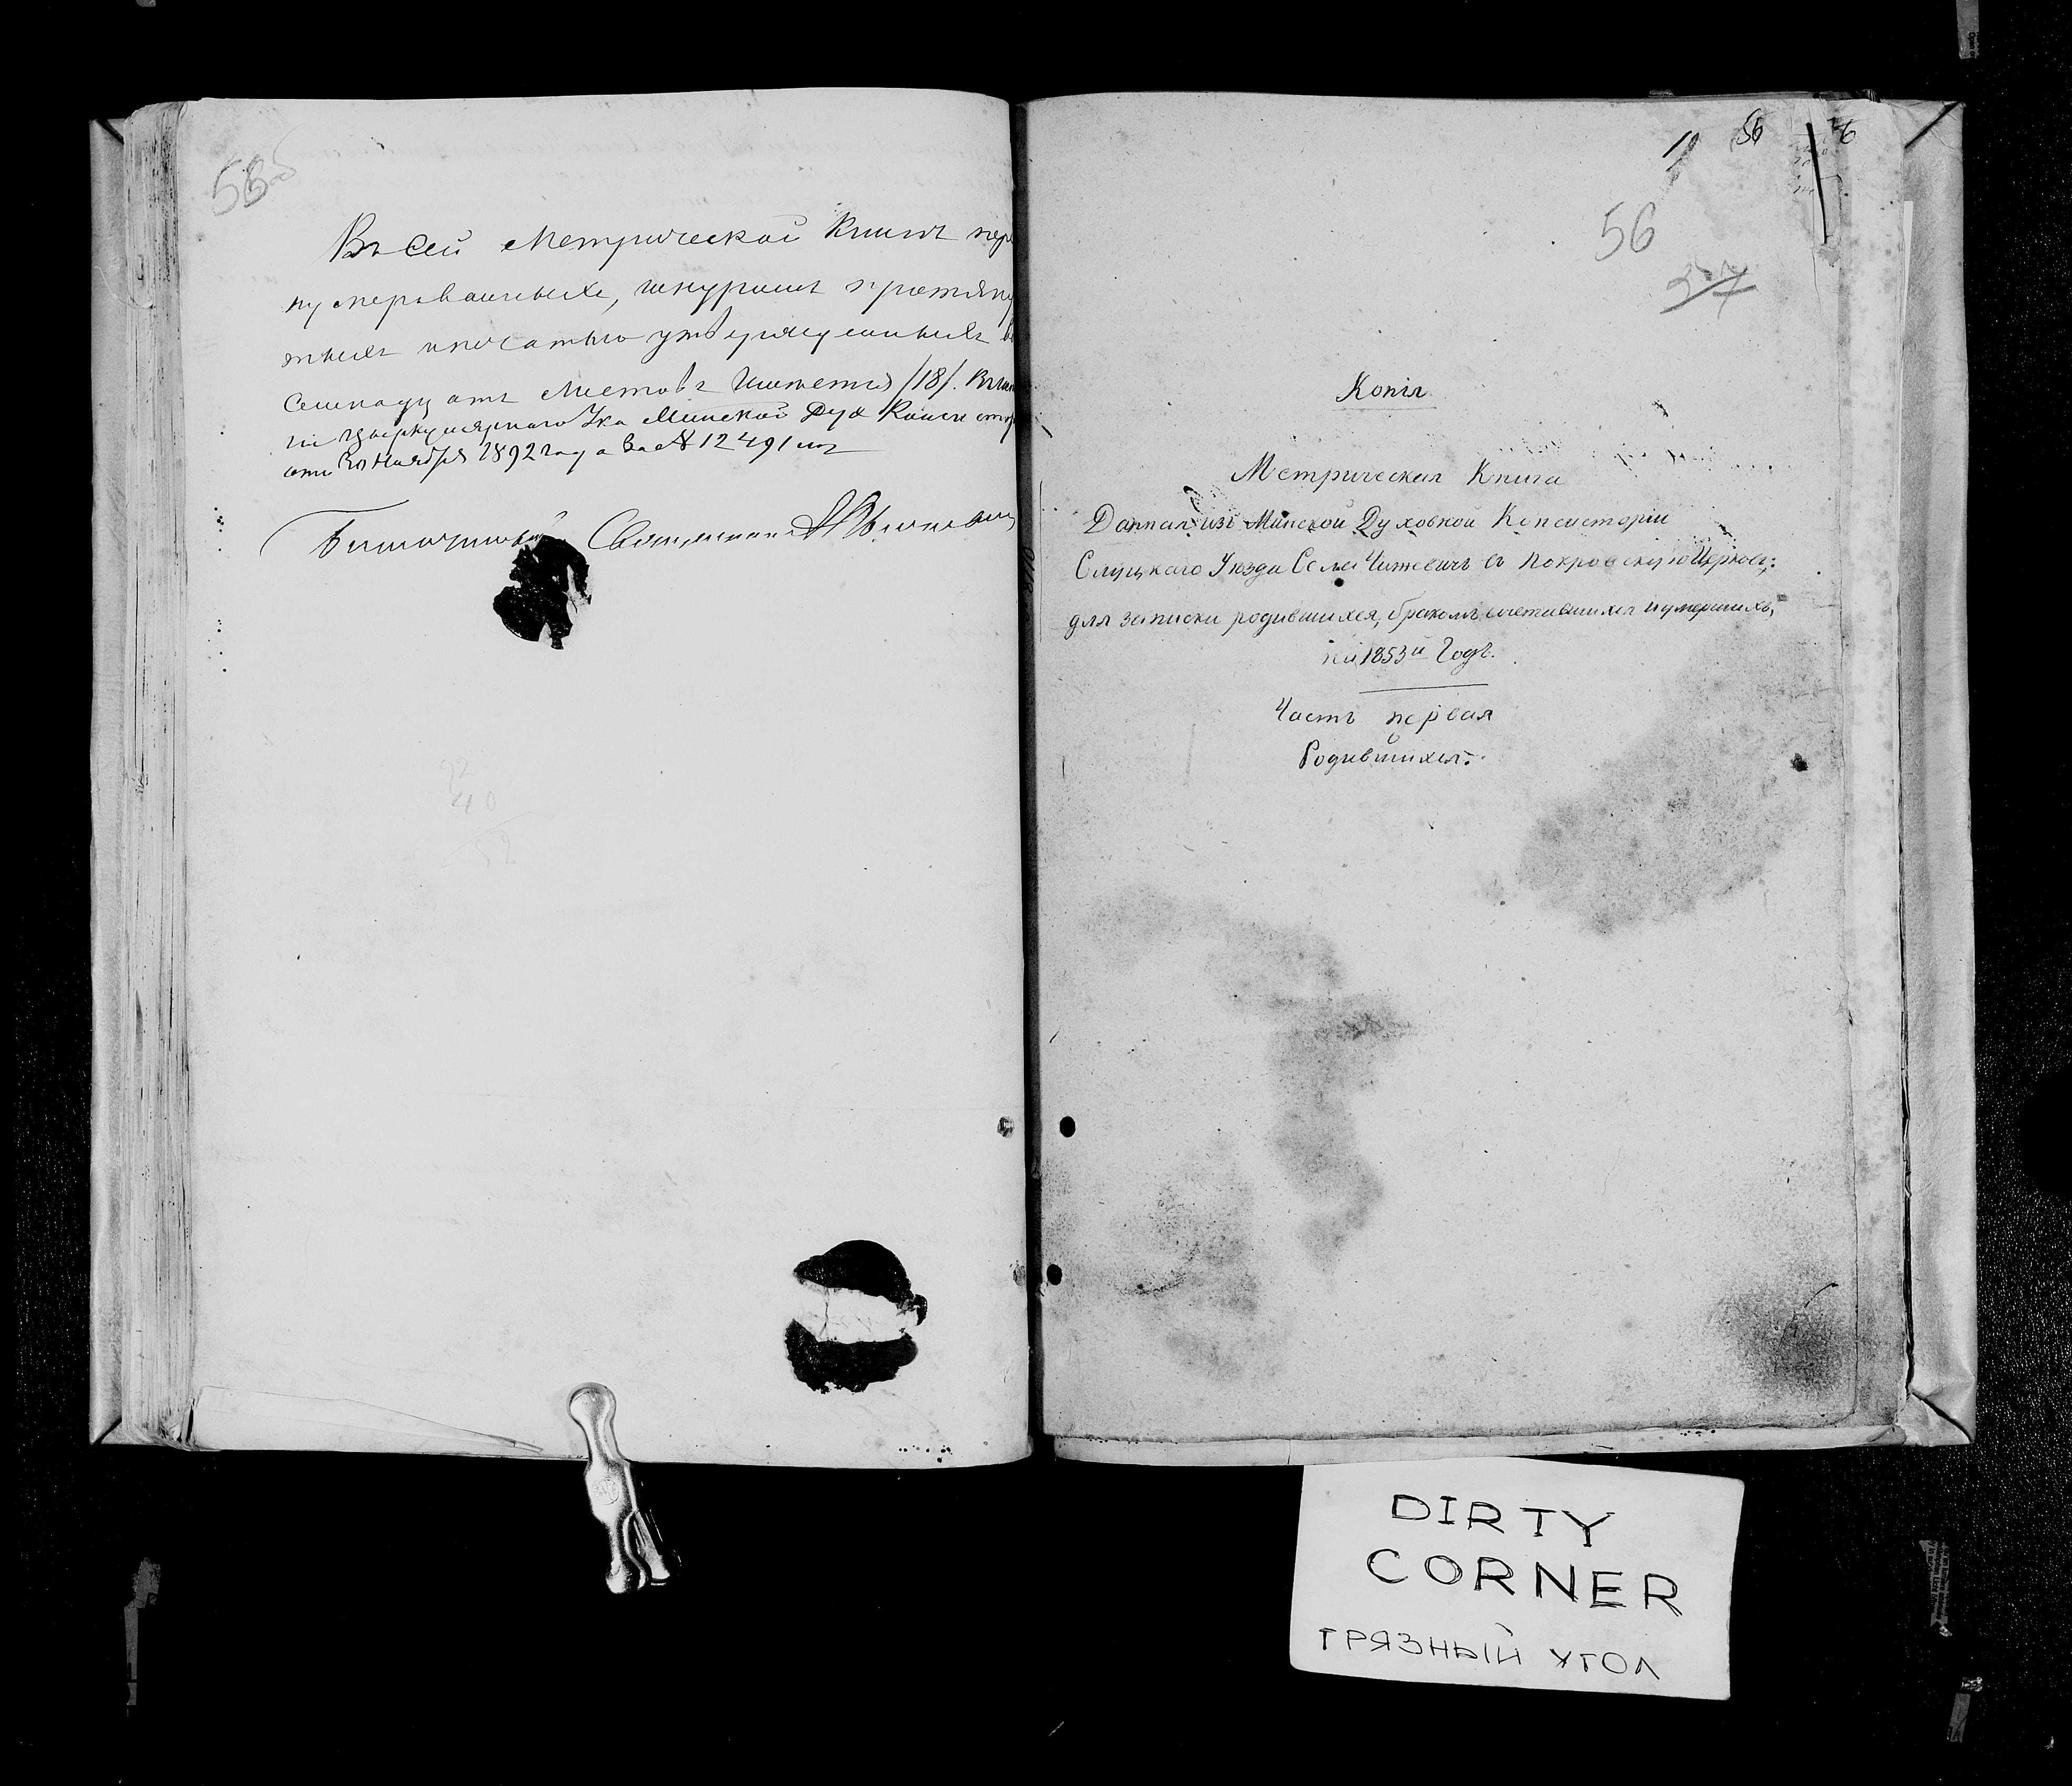 Въ сей Метрической Книгѣ пере
нумерованныхъ, шнуромъ протяну
тыхъ и печатью утвержденныхъ во
семнадцать листовъ имѣется /18/. Въ
Циркулярнаго Ука Минской Дух Консисто
отъ 30 Ноября 1892 года за № 12491
Благочинный Священникъ
56
1
56
56
Копія
Метрическая Книга
Данная изъ Минской Духовной Консисторіи
Слуцкаго Уѣзда Села Чижевичъ въ Покровскую Церковь:
для записки родившихся, бракомъ сочетавшихся и умершихъ,
на 1853й Годъ.
Часть первая
Родившихся.
DIRTY
CORNER
ГРЯЗНЫЙ УГОЛ